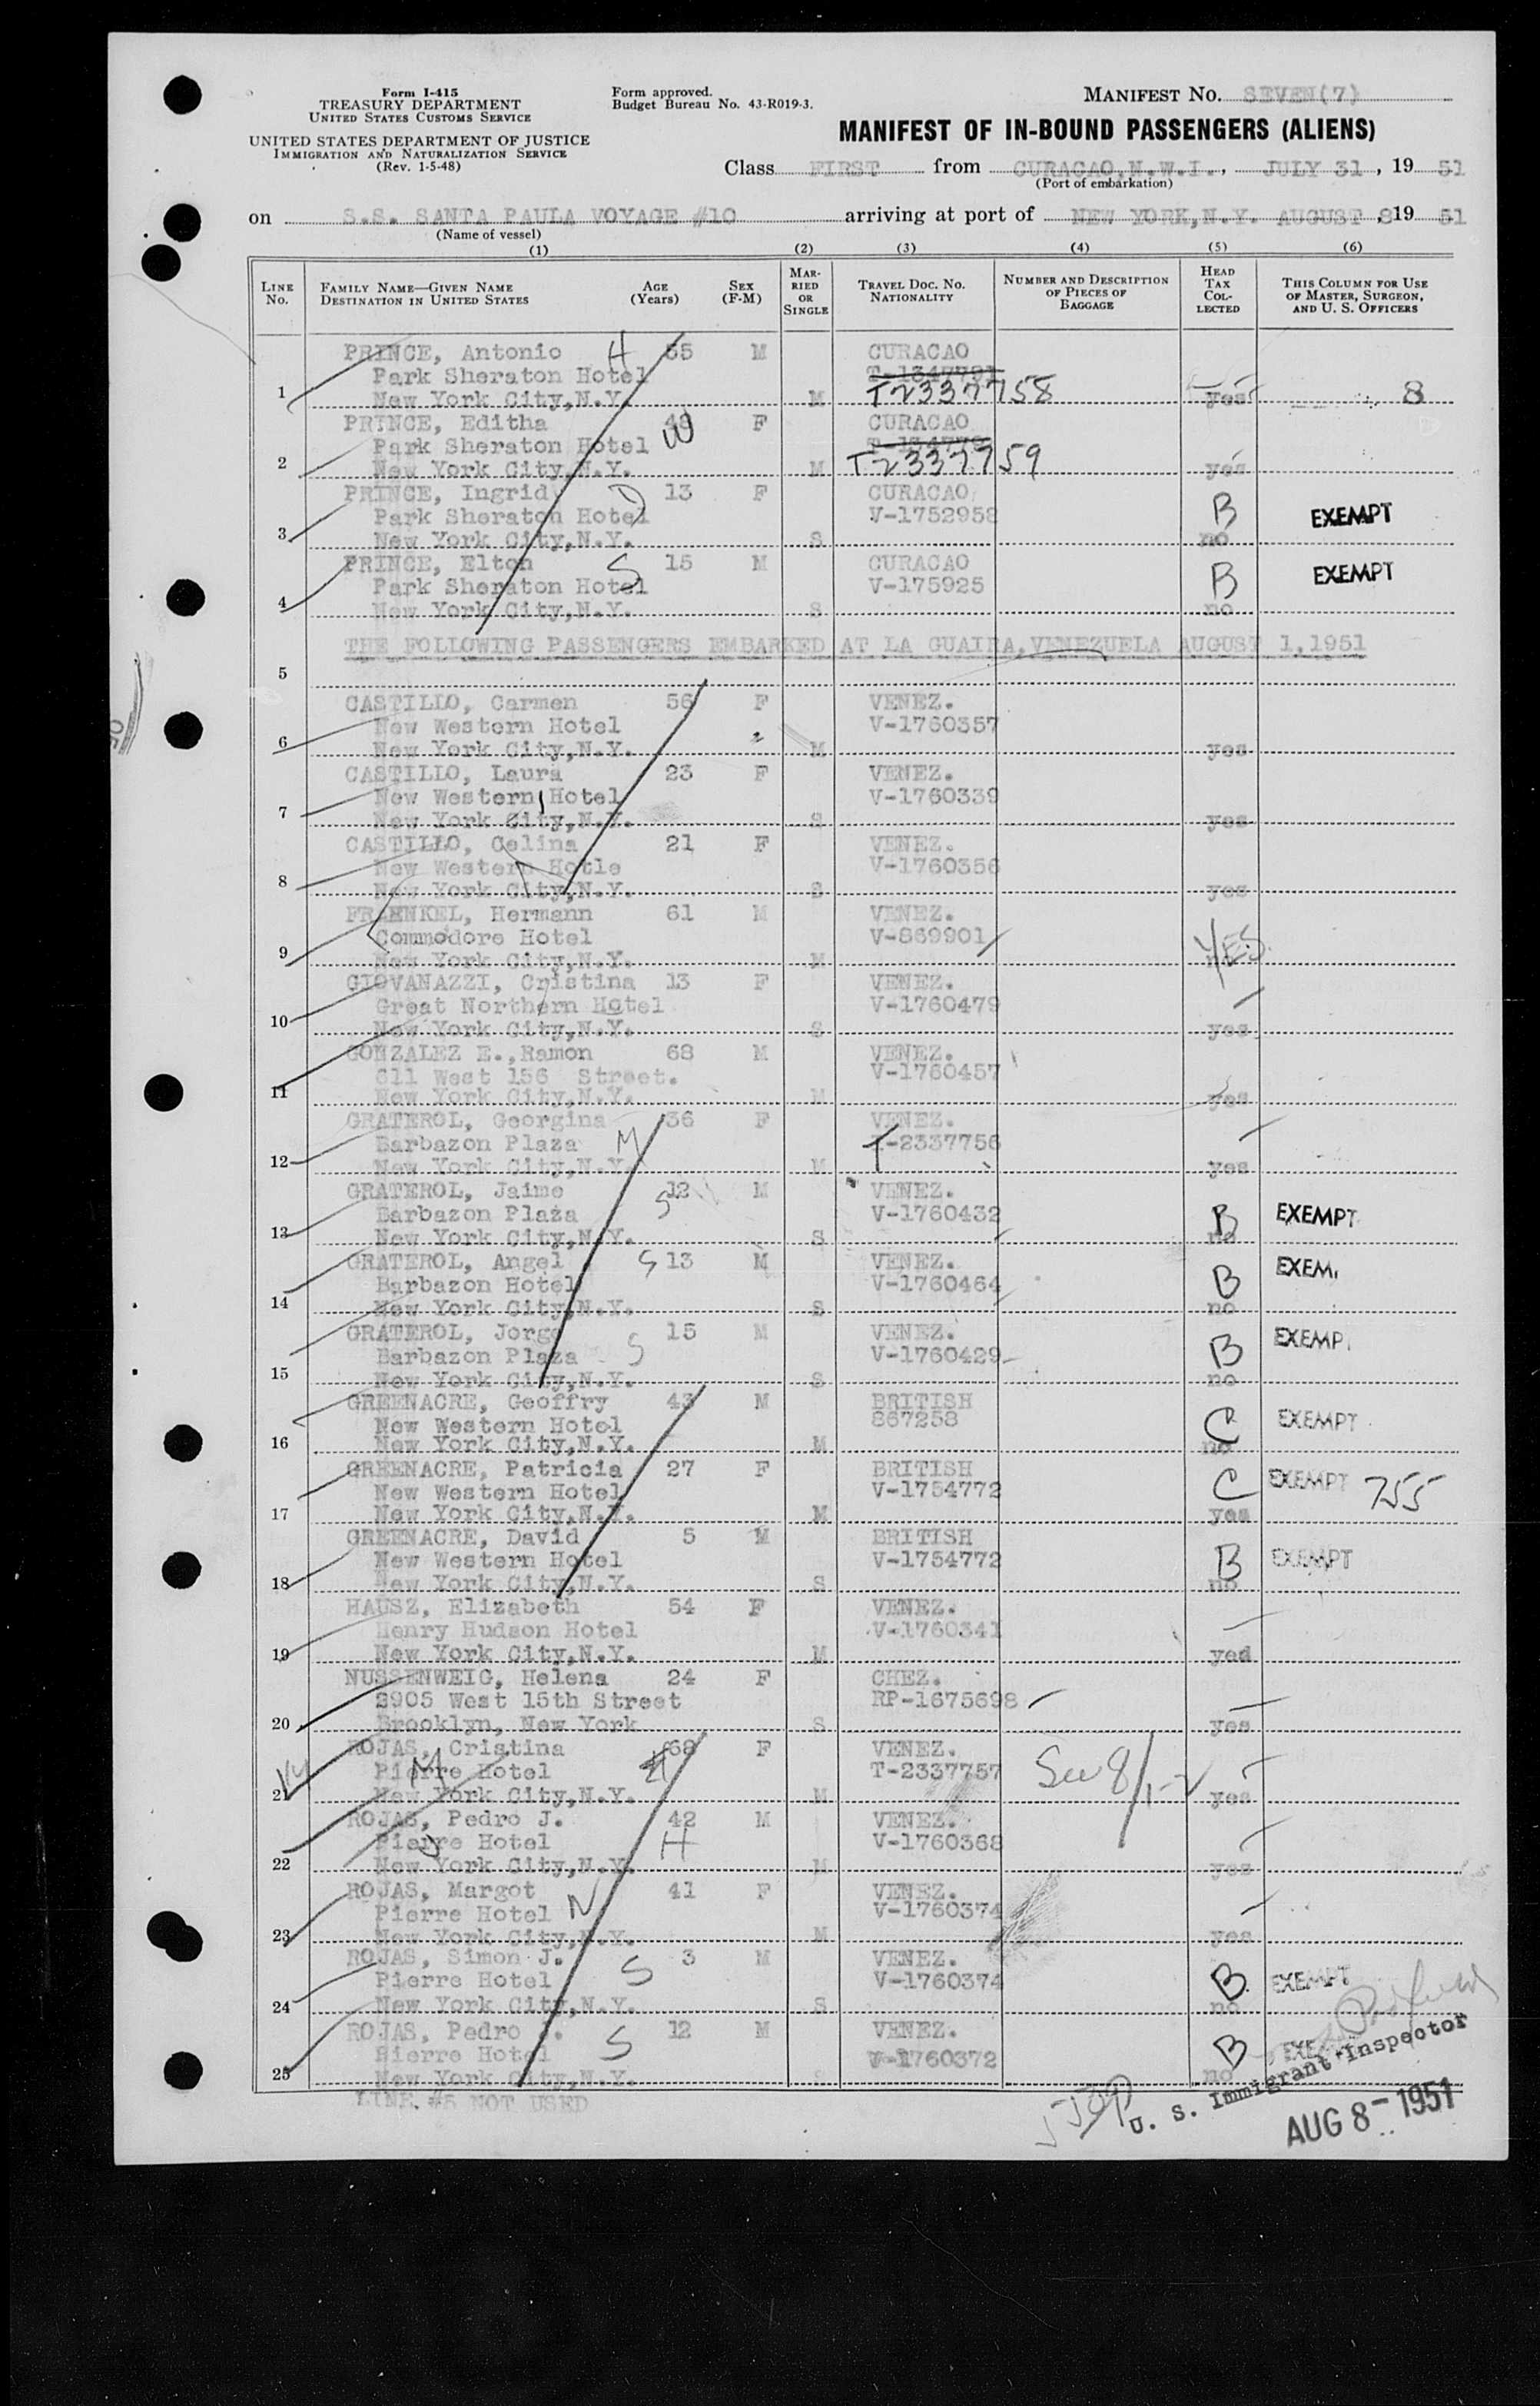 Form I-415
TREASURY DEPARTMENT
UNITED STATES CUSTOMS SERVICE
UNITED STATES DEPARTMENT OF JUSTICE
IMMIGRATION AND NATURALIZATION SERVICE
(Rev. 1-5-48)
Form approved.
Budget Bureau No. 43-R019-3.
MANIFEST NO. SEVEN(7)
MANIFEST OF IN-BOUND PASSENGERS (ALIENS)
Class FIRST from CURACAO,N.W.I., JULY 31, 19 51
(Port of embarkation)
on S.S. SANTA PAULA VOYAGE #10 arriving at port of NEW YORK,N.Y. AUGUST 8, 19 51
(Name of vessel)
(1) (2) (3) (4) (5) (6)
LINE NO. FAMILY NAME—GIVEN NAME DESTINATION IN UNITED STATES AGE (Years) SEX (F-M) MARRIED OR SINGLE TRAVEL DOC. NO. NATIONALITY NUMBER AND DESCRIPTION OF PIECES OF BAGGAGE HEAD TAX COLLECTED THIS COLUMN FOR USE OF MASTER, SURGEON, AND U. S. OFFICERS
PRINCE, Antonio H 55 M CURACAO
Park Sheraton Hotel T-1347791
1 New York City,N.Y. M T2337758 yes 8
PRINCE, Editha 48 W F CURACAO
Park Sheraton Hotel
2 New York City,N.Y. M T2337759 yes
PRINCE, Ingrid D 13 F CURACAO
Park Sheraton Hotel V-1752958 B EXEMPT
3 New York City,N.Y. S no
PRINCE, Elton S 15 M CURACAO
Park Sheraton Hotel V-175925 B EXEMPT
4 New York City,N.Y. S no
THE FOLLOWING PASSENGERS EMBARKED AT LA GUAIRA,VENEZUELA AUGUST 1,1951
5
CASTILLO, Carmen 56 F VENEZ.
New Western Hotel V-1760357
6 New York City,N.Y. M yes
CASTILLO, Laura 23 F VENEZ.
New Western Hotel V-1760339
7 New York City,N.Y. S yes
CASTILLO, Celina 21 F VENEZ.
New Western Hotle V-1760356
8 New York City,N.Y. S yes
FRAENKEL, Hermann 61 M VENEZ.
Commodore Hotel V-869901 YES
9 New York City,N.Y. M
GIOVANAZZI, Cristina 13 F VENEZ.
Great Northern Hotel V-1760479
10 New York City,N.Y. S yes
GONZALEZ E.,Ramon 68 M VENEZ.
611 West 156 Street. V-1760457
11 New York City,N.Y. M yes
GRATEROL, Georgina 36 F VENEZ.
Barbazon Plaza M T-2337756
12 New York City,N.Y. M yes
GRATEROL, Jaime 12 M VENEZ.
Barbazon Plaza S V-1760432 B EXEMPT
13 New York City,N.Y. S no
GRATEROL, Angel S 13 M VENEZ.
Barbazon Hotel V-1760464 B EXEM
14 New York City,N.Y. S no
GRATEROL, Jorge 15 M VENEZ.
Barbazon Plaza S V-1760429 B EXEMP
15 New York City,N.Y. S no
GREENACRE, Geoffry 43 M BRITISH
New Western Hotel 867258 C EXEMPT
16 New York City,N.Y. M no
GREENACRE, Patricia 27 F BRITISH
New Western Hotel V-1754772 C EXEMPT 755
17 New York City,N.Y. M yes
GREENACRE, David 5 M BRITISH
New Western Hotel V-1754772 B EXEMPT
18 New York City,N.Y. S no
HAUSZ, Elizabeth 54 F VENEZ.
Henry Hudson Hotel V-1760341
19 New York City,N.Y. M yed
NUSSENWEIG, Helena 24 F CHEZ.
2905 West 15th Street RP-1675698
20 Brooklyn, New York S yes
ROJAS, Cristina 68 F VENEZ.
Pierre Hotel M T-2337757
21 New York City,N.Y. M yes
ROJAS, Pedro J. 42 M VENEZ.
Pierre Hotel H V-1760368
22 New York City,N.Y. M yes
ROJAS, Margot 41 F VENEZ.
Pierre Hotel V-1760374
23 New York City,N.Y. M yes
ROJAS, Simon J. 3 M VENEZ.
Pierre Hotel S V-1760374 B EXEMPT
24 New York City,N.Y. S no
ROJAS, Pedro J. 12 M VENEZ.
Pierre Hotel S V-1760372 B EXE
25 New York City,N.Y. no
LINE #5 NOT USED
U. S. Immigrant Inspector
AUG 8- 1951